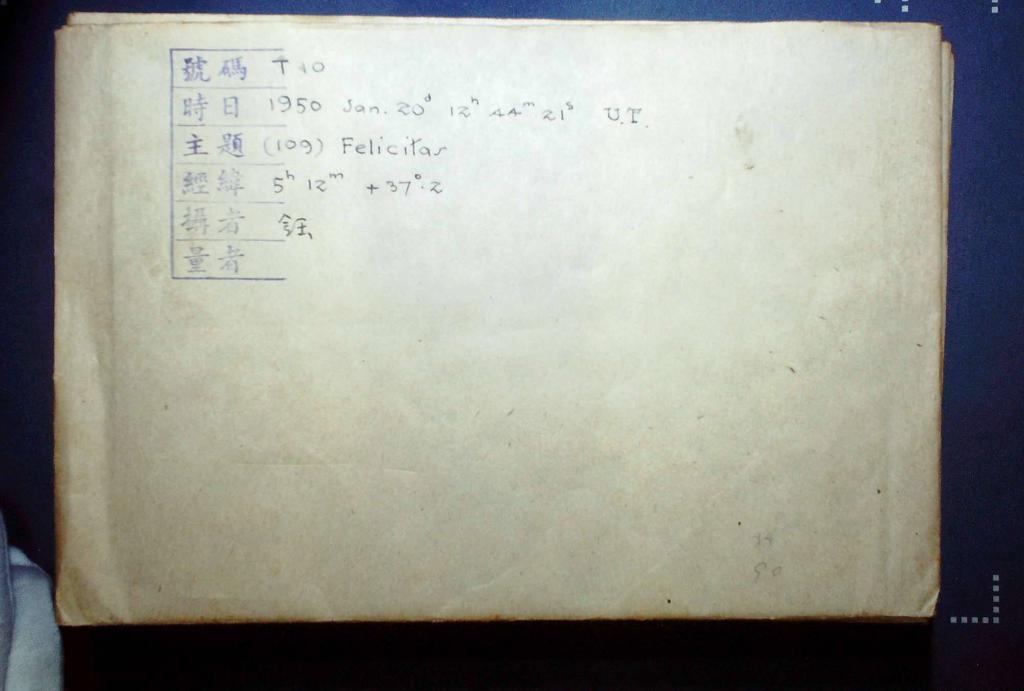 號碼 T 10
時日 1950 Jan. 20ᵈ 12ʰ 44ᵐ 21ˢ U.T.
主題 (109) Felicitas
經緯 5ʰ 12ᵐ +37°.2
攝者
量者